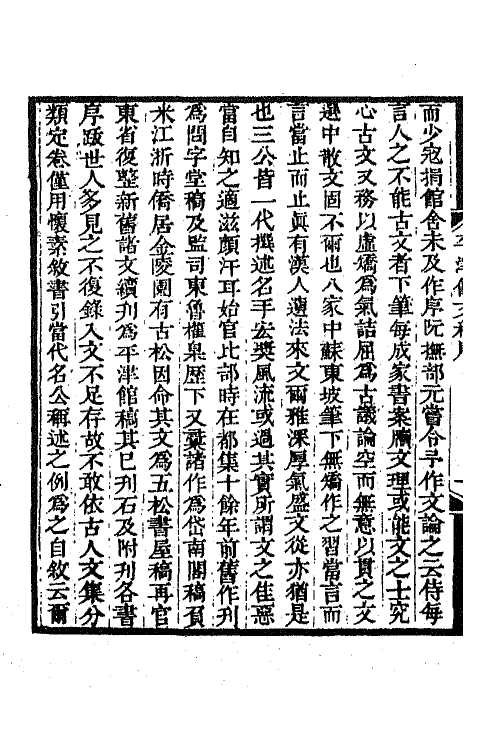 而少宛捐館舍未及作序阮撫部元嘗合予作文論之云侍每
言人之不能古文者下筆每成家書案牘文理或能文之士究
心古文又務以虛矯為氣詰屈為古議論空而無意以貫之文
選中散文固不爾也八家中蘇東坡筆下無矯作之習當言而
言當止而止真有漢人遺法來文爾雅深厚氣盛文從亦猶是
也三公皆一代撰述名手宏獎風流或過其實所謂文之佳惡
當自知之適滋顏汗耳始官比部時在都集十餘年前舊作刊
為問字堂稿及監司東魯權臬歷下又彙諸作為岱南閣稿頁
米江浙時僑居金陵園有古松因命其文為五松書屋稿再官
東省復整新舊諸文續刊為平津館稿其已刊石及附刊各書
序跋世人多見之不復錄入文不足存故不敢依古人文集分
類定卷僅用懷素敘書引當代名公稱述之例為之自敘云爾
平津館文稿序